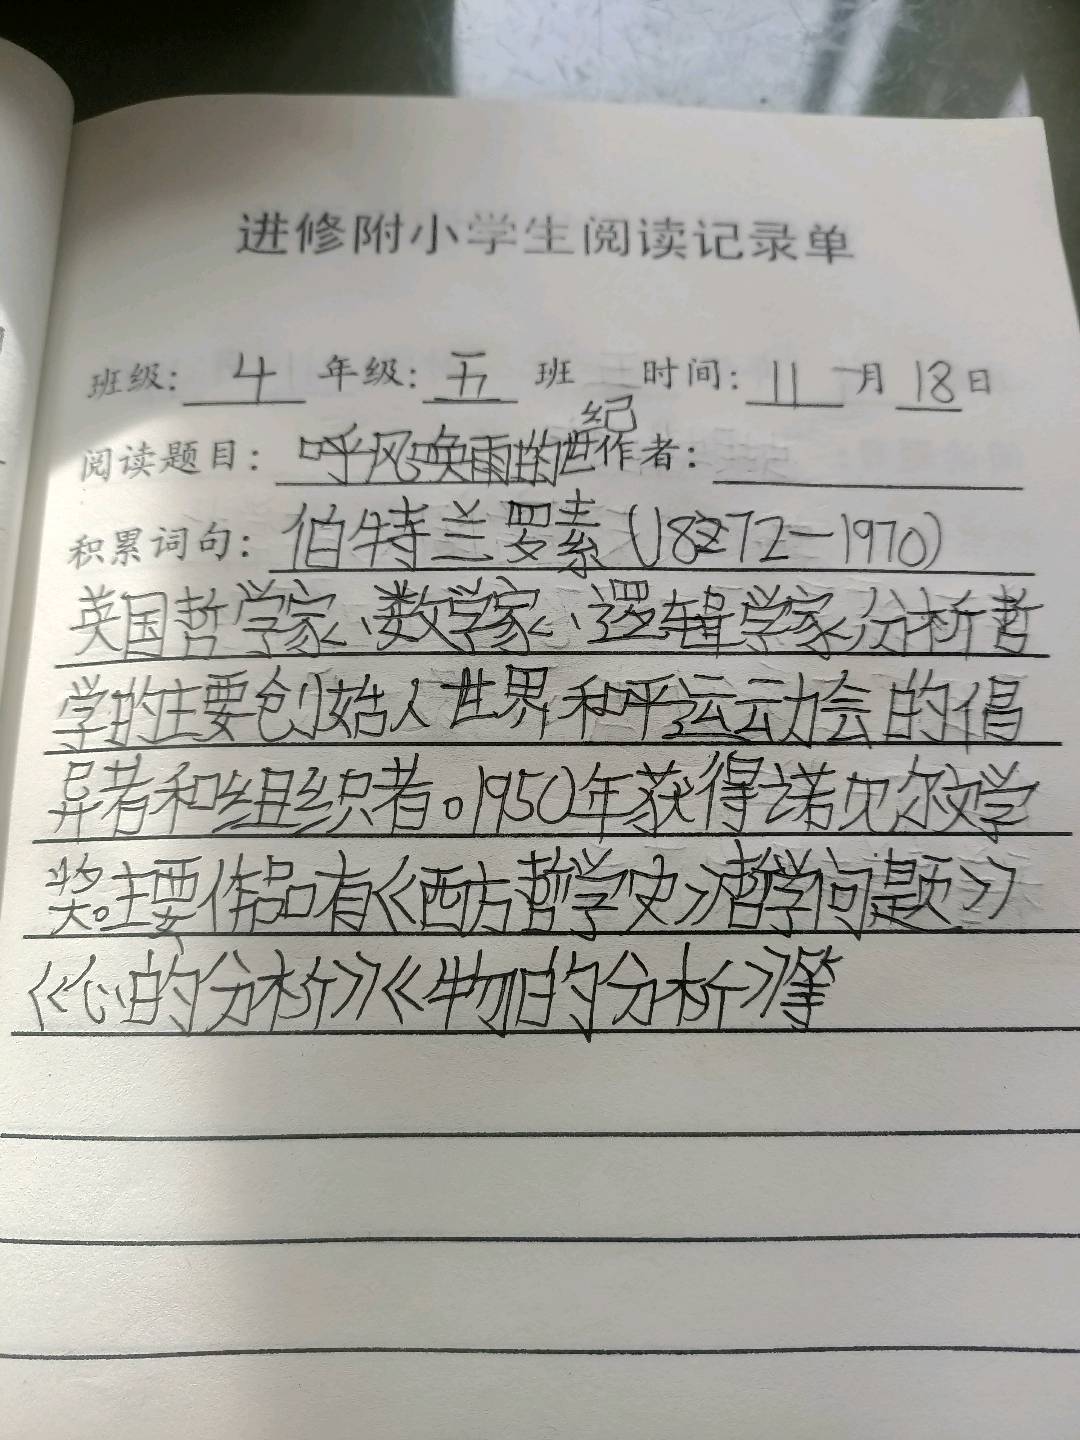 进修附小学生阅读记录单
班级: 4 年级: 五 班 时间: 11 月 18 日
阅读题目: 呼风唤雨的世纪 作者:
积累词句: 伯特兰罗素(1872—1970)
英国哲学家、数学家、逻辑学家,分析哲
学的主要创始人世界和平运动会的倡
异者和组织者。1950年获得诺贝尔文学
奖。主要作品有《西方哲学史》哲学问题》
《心的分析》《物的分析》等